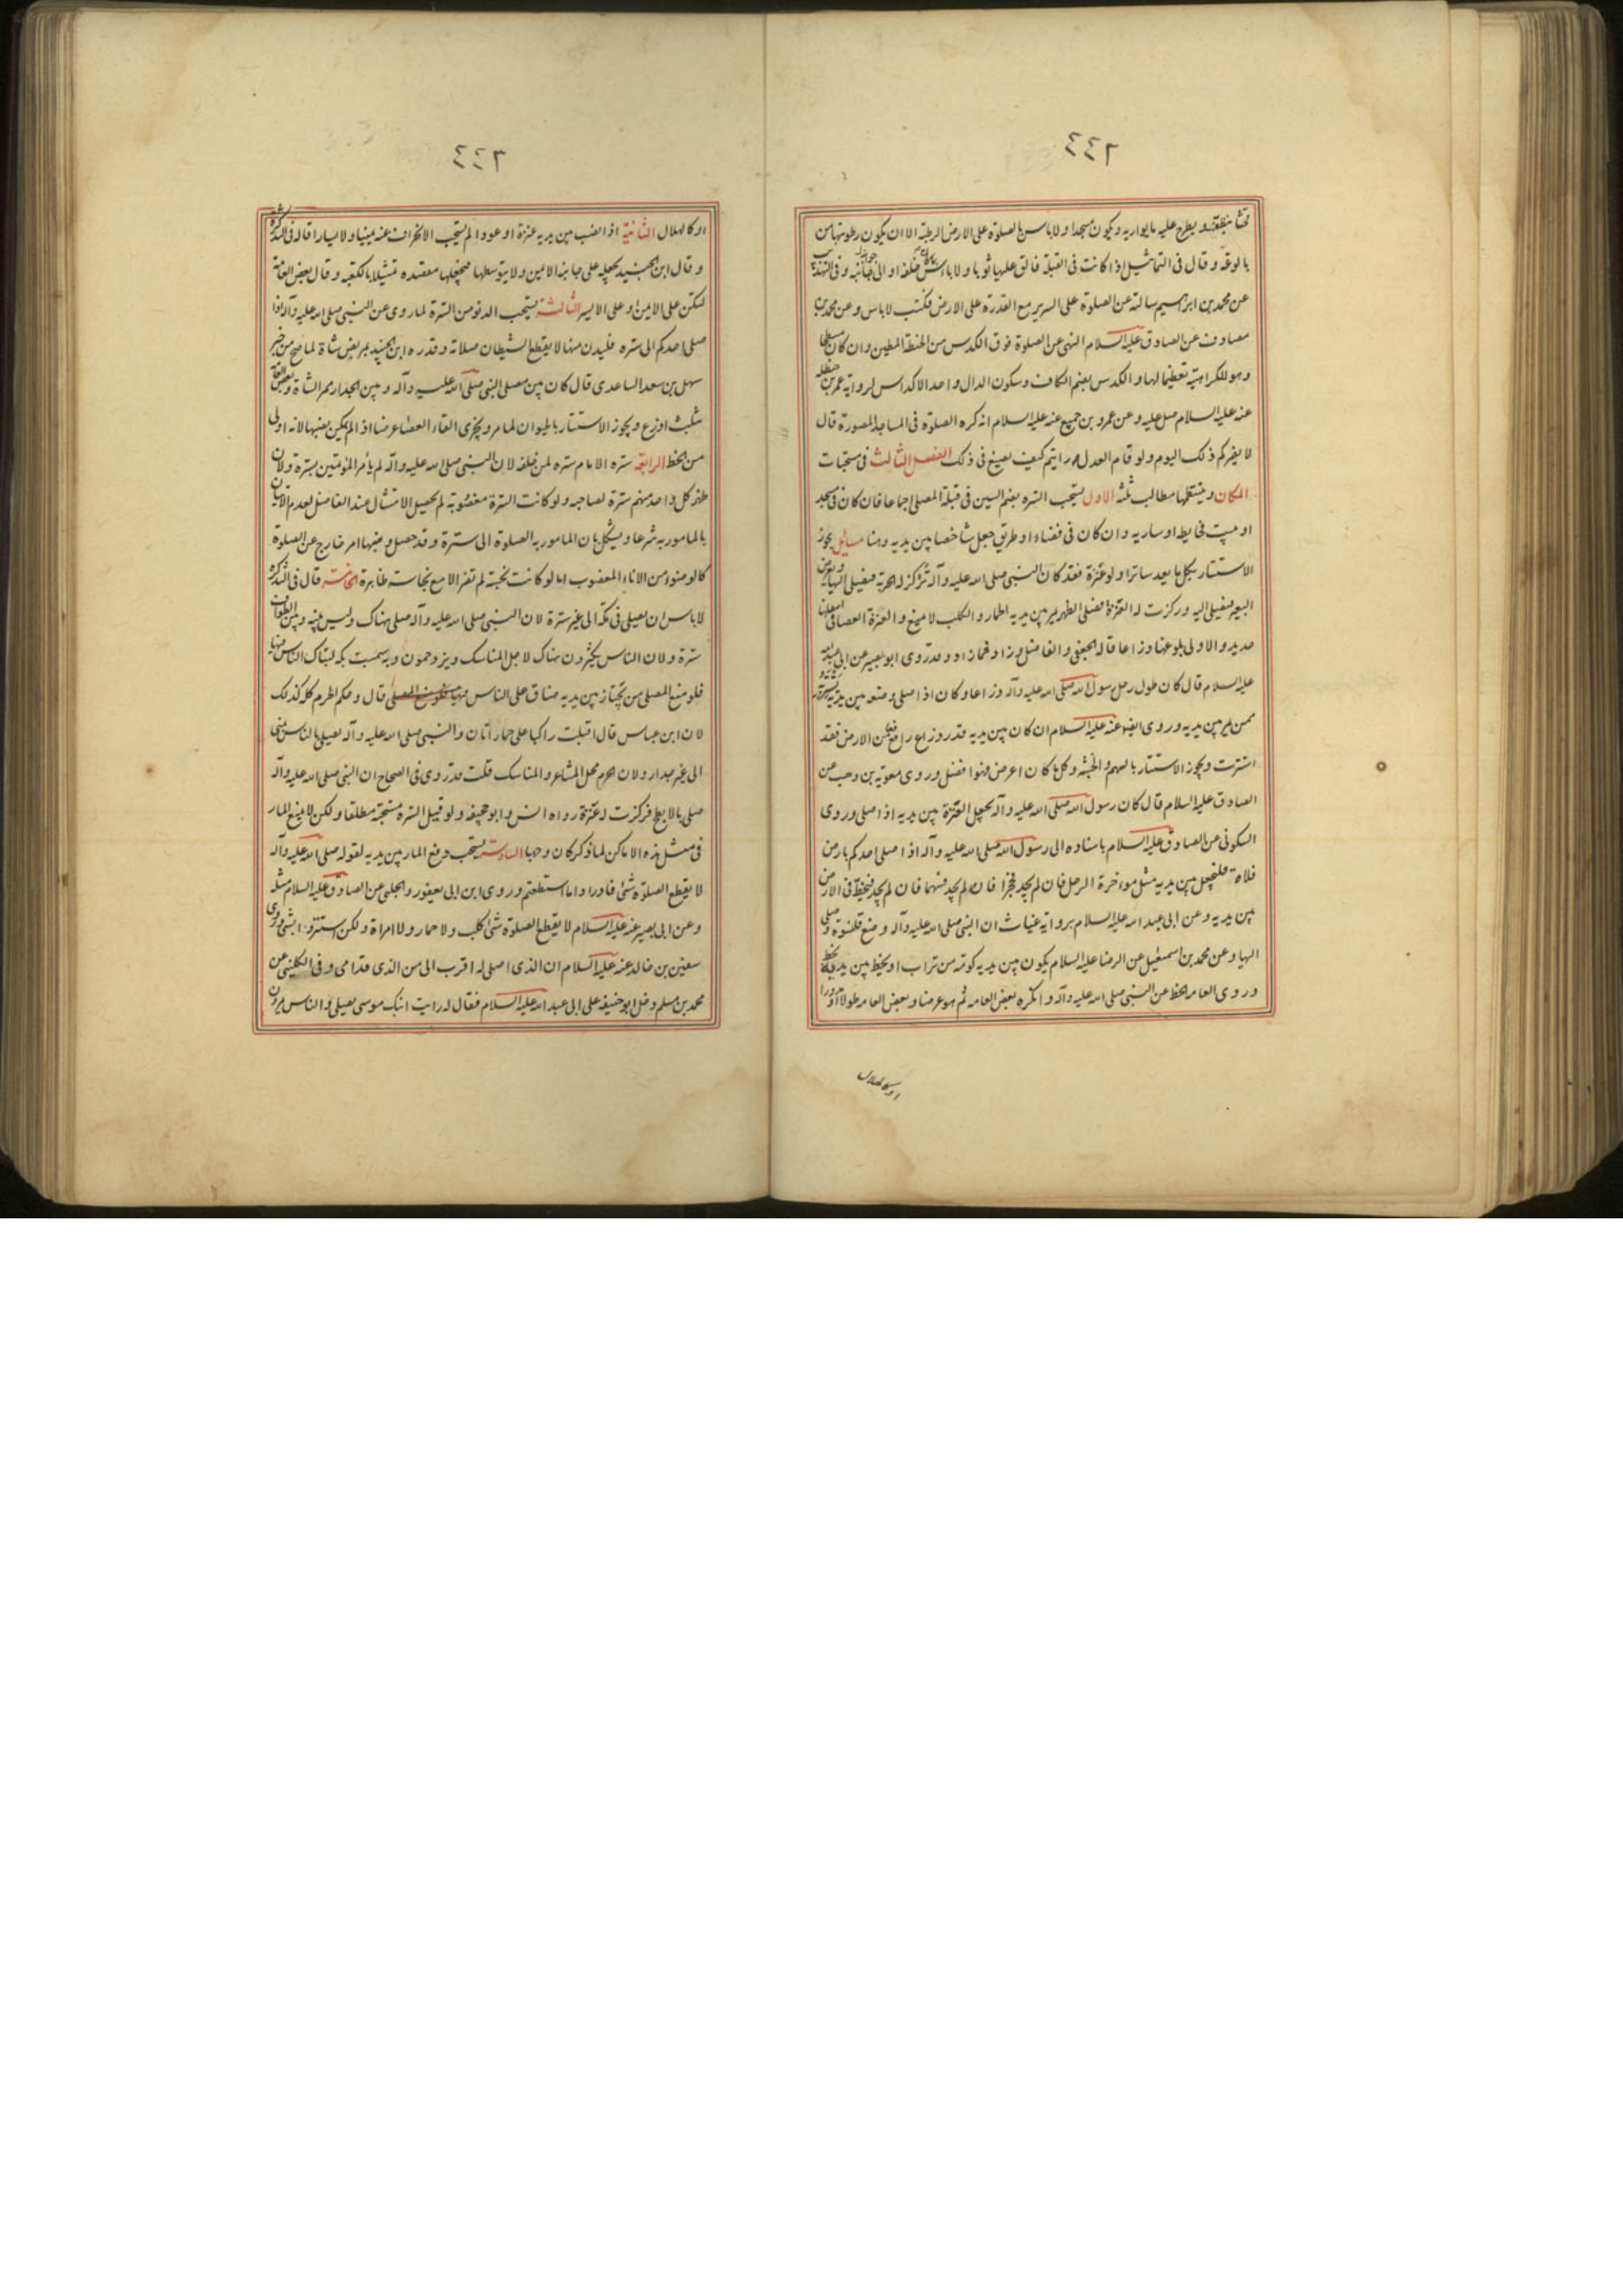 ٤٤٢
قشا بنظفه ويطرح عليه ما يواريه ويكون مسجدا ولا باس بالصلوة على الارض الرطبة الا ان يكون رطوبتها من
بالوعة وقال في التماثيل اذا كانت في القبلة فالق عليها ثوبا ولا باس خلفه او الى جانبه وفي التهذيب
عن محمد بن ابرهيم سالته عن الصلوة على السرير مع القدرة على الارض فكتب لا باس وعن محمد بن
مصادف عن الصادق عليه السلام النهى عن الصلوة فوق الكدس من الحنطة المطين وان كان مسطحا
وهو للكراهية تعظيما لها والكدس بضم الكاف وسكون الدال واحد الاكداس لرواية عمر بن حنظله
عنه عليه السلام وعن عمرو بن جميع عنه عليه السلام انه كره الصلوة في المساجد المصورة قال
لا يضركم ذلك اليوم ولو قام العدل رايتم كيف يصنع في ذلك الفصل الثالث في مستحبات
المكان وينتظمها مطالب ثلثة الاول يستحب السترة بضم السين في قبلة المصلى اجماعا فان كان في مسجد
او بيت فحايطه او ساريه وان كان في فضاء او طريق جعل شاخصا بين يديه وهنا مسايل يجوز
الاستتار بكل ما يعد ساترا ولو عنزة فقد كان النبي صلى الله عليه وآله تركز له الحربة فيصلى اليها ويعرض
البعير فيصلى اليه وركزت له العنزة فصلى الظهر يمر بين يديه الحمار والكلب لا يمنع والعنزة العصا في اسفلها
حديد والاولى بلوغها ذراعا قاله الجعفي والفاضل وزاد فما زاد وقد روى ابو بصير عن ابي عبد الله
عليه السلام قال كان طول رحل رسول الله صلى الله عليه وآله ذراعا وكان اذا صلى وضعه بين يديه يستتر به
ممن يمر بين يديه وروى ايضا عنه عليه السلام ان كان بين يديه قدر ذراع رافع من الارض فقد
استترت ويجوز الاستتار بالسهم والخشبة وكل ما كان اعرض فهو افضل وروى معوية بن وهب عن
الصادق عليه السلام قال كان رسول الله صلى الله عليه وآله يجعل العنزة بين يديه اذا صلى وروى
السكوني عن الصادق عليه السلام باسناده الى رسول الله صلى الله عليه وآله اذا صلى احدكم بارض
فلاة فليجعل بين يديه مثل مواخرة الرحل فان لم يجد فحجرا فان لم يجد فسهما فان لم يجد فليخط في الارض
بين يديه وعن ابي عبد الله عليه السلام برواية غياث ان النبي صلى الله عليه وآله وضع قلنسوة وصلى
اليها وعن محمد بن اسمعيل عن الرضا عليه السلام يكون بين يديه كومة من تراب او يخط بين يديه بخط
وروى العامة الخط عن النبي صلى الله عليه وآله وانكره بعض العامه ثم هو عرضا وبعض العامه طولا او مدورا
او كالهلال
٤٤٣
او كالهلال الثانية اذا نصب بين يديه عنزة او عودا لم يستحب الانحراف عنه يمينا ولا يسارا قاله في التذكرة
وقال ابن الجنيد يجعله على جانبه الايمن ولا يتوسطها فيجعلها مقصده تمثيلا بالكعبه وقال بعض العامة
لتكن على الايمن او على الايسر الثالثة يستحب الدنو من السترة لما روى عن النبي صلى الله عليه وآله اذا
صلى احدكم الى ستره فليدن منها لا يقطع الشيطان صلاته وقدره ابن الجنيد بمربض شاة لما صح من خبر
سهل بن سعد الساعدى قال كان بين مصلى النبي صلى الله عليه وآله وبين الجدار ممر الشاة وبعض العامة
بثلث اذرع ويجوز الاستتار بالحيوان لما مر ويجزى القاء العصا عرضا اذا لم يمكن نصبها لانه اولى
من الخط الرابعة ستره الامام ستره لمن خلفه لان النبي صلى الله عليه وآله لم يأمر المؤتمين بسترة ولان
ظهر كل واحد منهم سترة لصاحبه ولو كانت السترة مغصوبة لم يحصل الامتثال عند الفاضل لعدم الاتيان
بالمامور به شرعا ويشكل بان المامور به الصلوة الى سترة وقد حصل وغصبها امر خارج عن الصلوة
كالوضوء من الاناء المغصوب اما لو كانت نجسة لم تضر الا مع نجاسة ظاهرة الخامسة قال في التذكرة
لا باس ان يصلى في مكة الى غير سترة لان النبي صلى الله عليه وآله صلى هناك وليس بينه وبين الطواف
سترة ولان الناس يكثرون هناك لاجل المناسك ويزدحمون وبه سميت بكه لتباك الناس فيها
فلو منع المصلى من يجتاز بين يديه ضاق على الناس قال وحكم الحرم كله كذلك
لان ابن عباس قال اقبلت راكبا على حمار اتان والنبي صلى الله عليه وآله يصلى بالناس بمنى
الى غير جدار ولان الحرم محل المشاعر والمناسك قلت قد روى في الصحاح ان النبي صلى الله عليه وآله
صلى بالابطح فركزت له عنزة رواه انس وابو جحيفه ولو قيل السترة مستحبة مطلقا ولكن لا يمنع المار
في مثل هذه الاماكن لما ذكر كان وجها السادسة يستحب دفع المار بين يديه لقوله صلى الله عليه وآله
لا يقطع الصلوة شئ فادراوا ما استطعتم وروى ابن ابي يعفور والحلبي عن الصادق عليه السلام مثله
وعن ابي بصير عنه عليه السلام لا يقطع الصلوة شئ كلب ولا حمار ولا امراة ولكن استتروا بشئ وروى
سفين بن خالد عنه عليه السلام ان الذى اصلى له اقرب الى من الذى قدامى وفي الكليني عن
محمد بن مسلم دخل ابو حنيفه على ابي عبد الله عليه السلام فقال له رايت ابنك موسى يصلى والناس يمرون